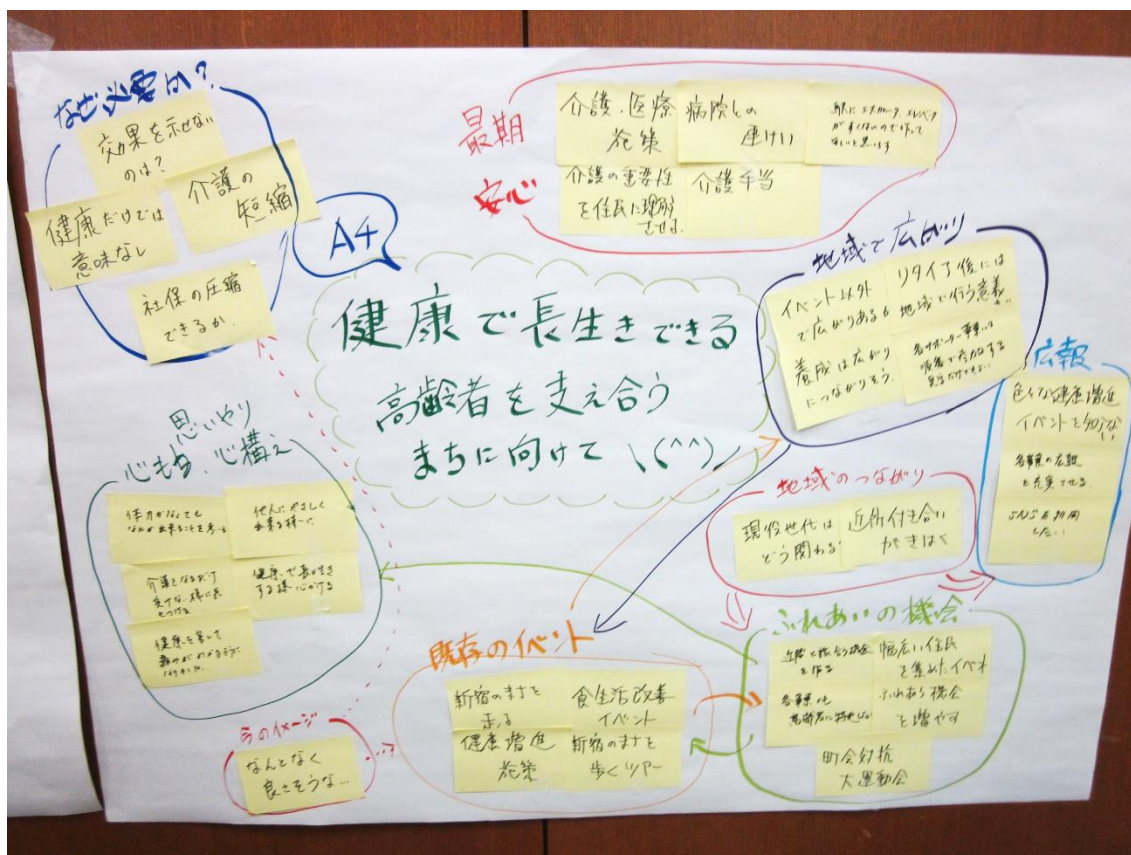 なぜ必要か?
効果を示せない
のは?
介護の
短縮
健康だけでは
意味なし
社保の圧縮
できるか.
A4
最期
安心
介護.医療
施策
病院との
連けい
駅にエスカレータ、エレベータ
が少くないので作って
ほしいと思います
介護の重要性
を住民に理解
させる.
介護手当
健康で長生きできる
高齢者を支え合う
まちに向けて \(^^)/
地域で広がり
イベント以外
で広がりあるも
リタイア後には
地域で行う意義
養成は広がり
につながりそう.
各サポーター事業は
広報
色々な健康増進
イベントを知らない
各事業の広報
を充実させる
SNSを利用
したい
思いやり
心もち、心構え
体力がなくても
他人にやさしく
出来る様に
介護をなるだけ
受けない様に気
をつける.
健康で長生き
する様心がける
健康を害して
地域のつながり
現役世代は
どう関わる?
近所付き合い
がきはく
ふれあいの機会
近隣と知合う機会
を作る
幅広い住民
を集めたイベント
各事業とも
高齢者に特化しない
ふれあう機会
を増やす
町会対抗
大運動会
既存のイベント
新宿のまちを
走る
食生活改善
イベント
健康増進
施策
新宿のまちを
歩くツアー
今のイメージ
なんとなく
良さそうな…